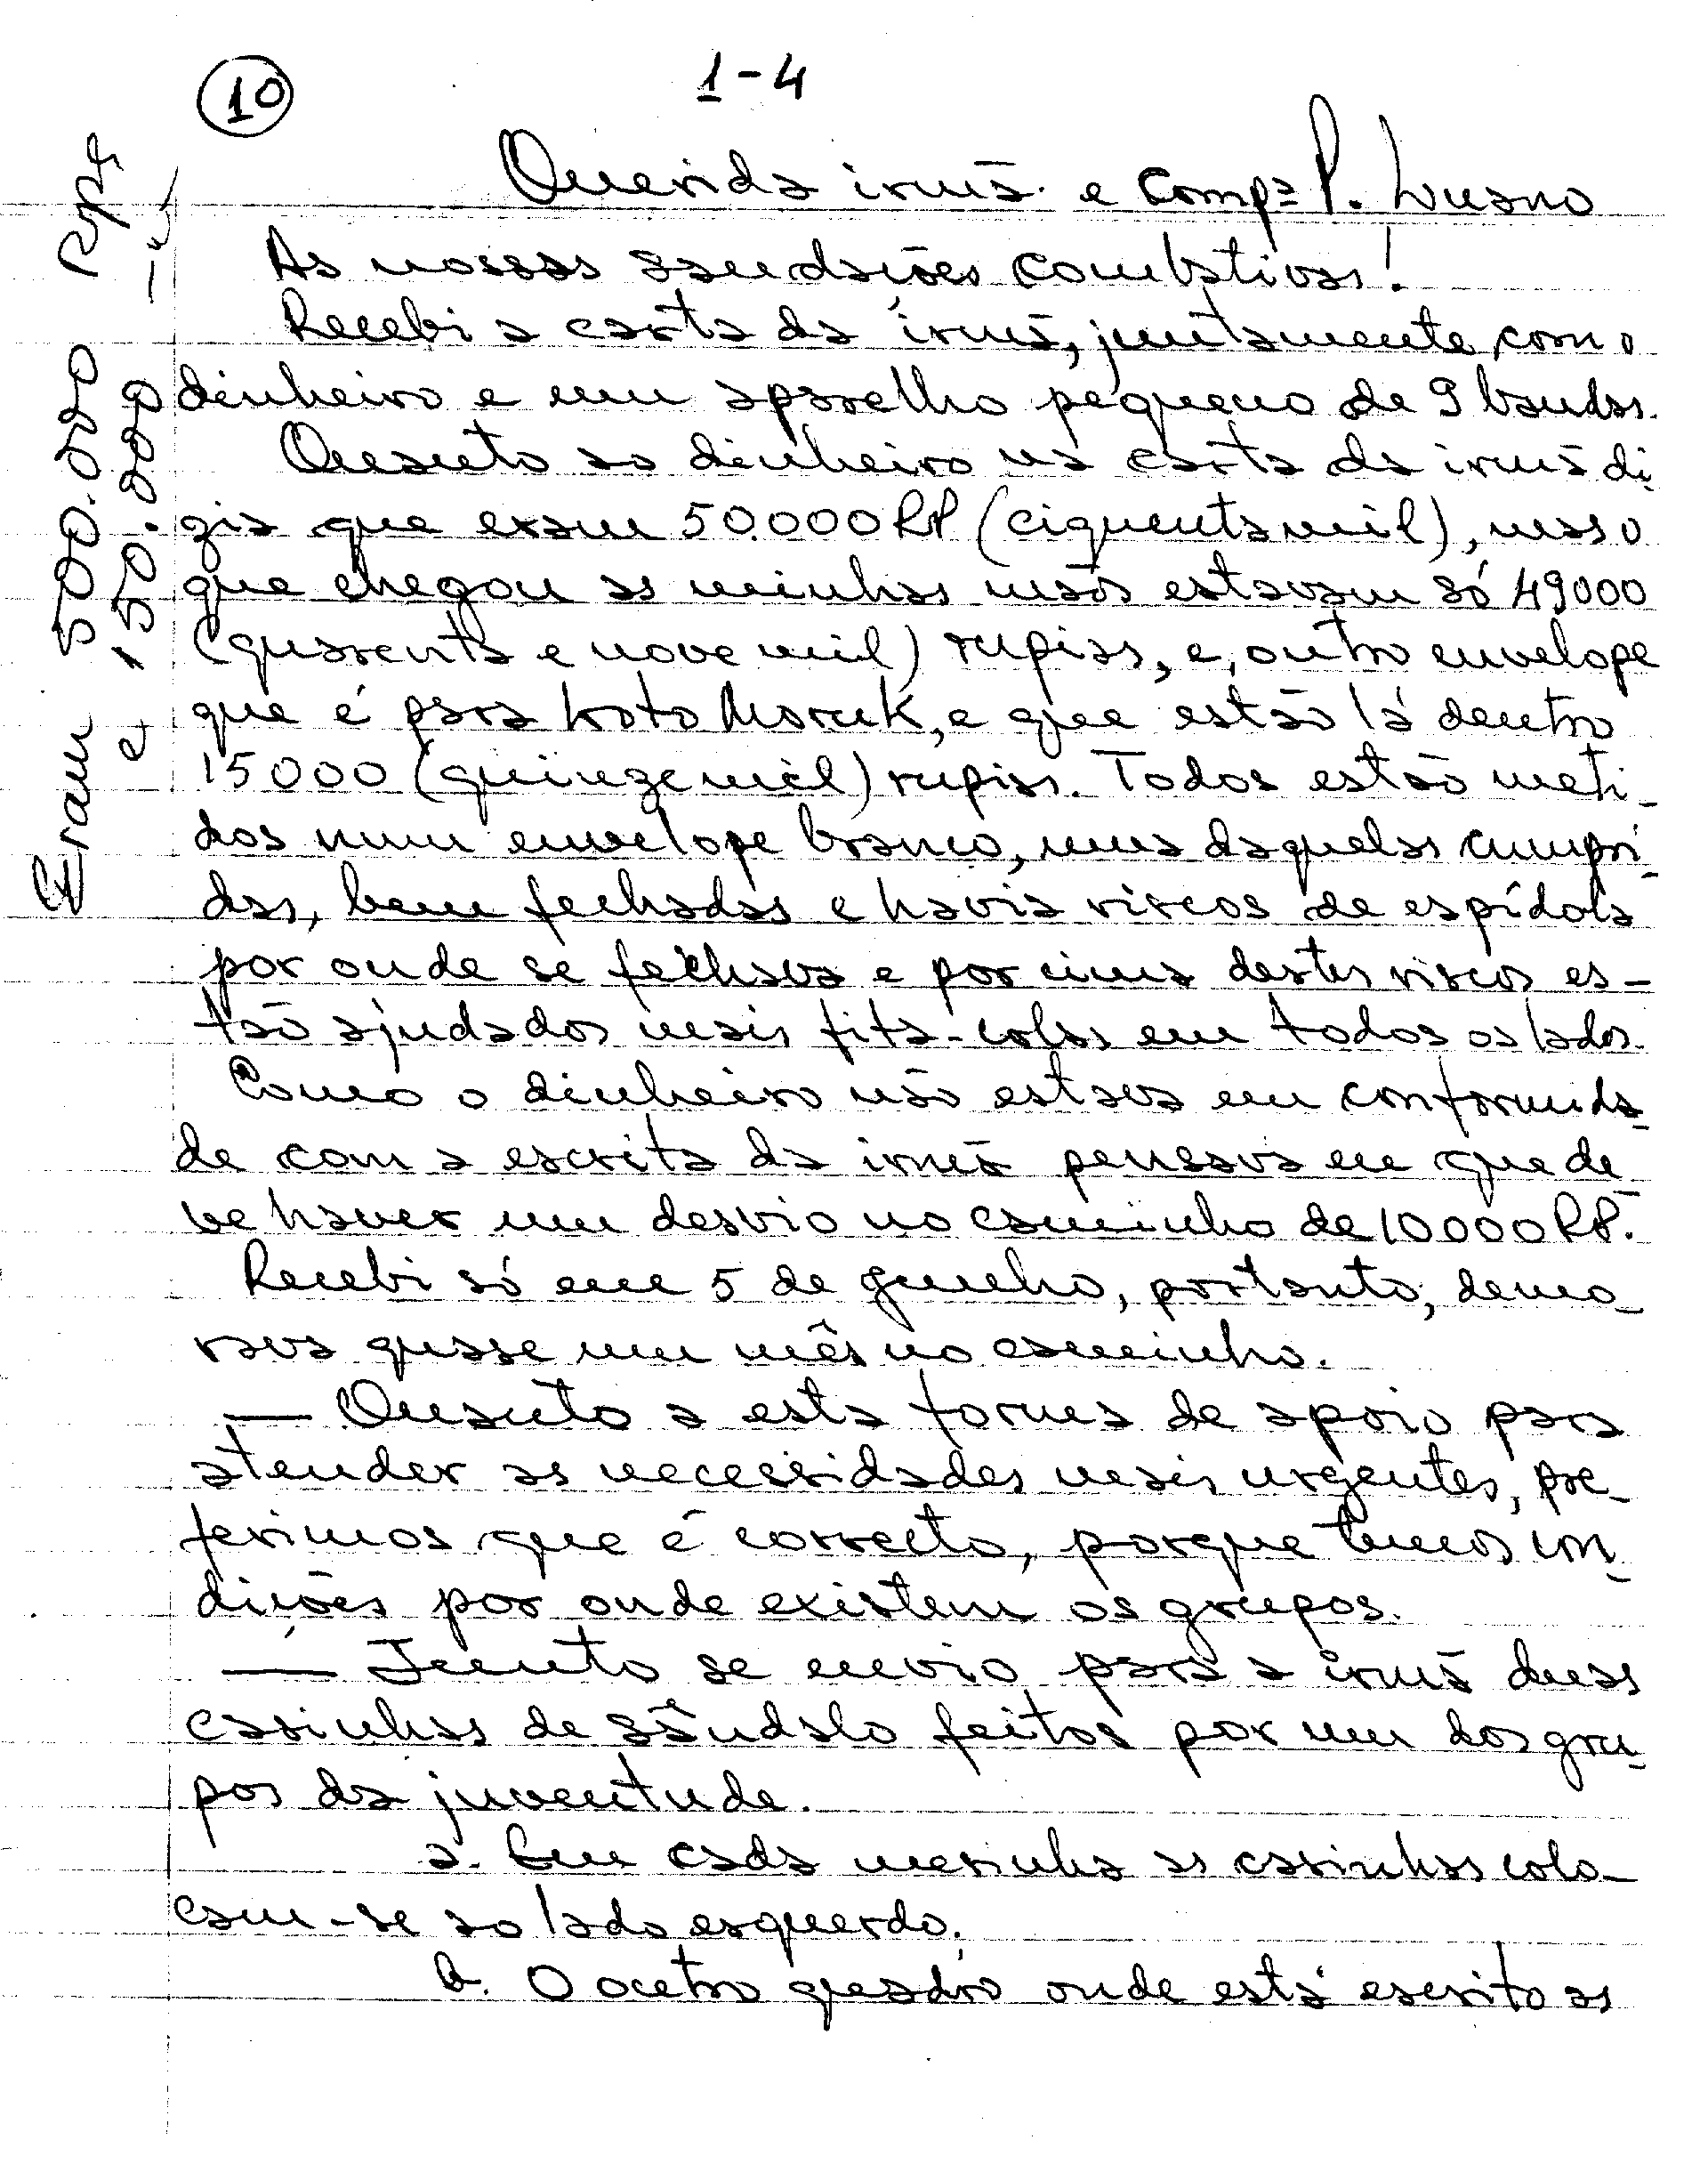 10
1-4
Querida irmã e Compª P. Lusano
As nossas saudações combativas!
Recebi a carta da irmã, juntamente com o
dinheiro e um aparelho pequeno de 9 bandas.
Quanto ao dinheiro na carta da irmã di-
zia que eram 50.000 RP (ciquenta mil), mas o
que chegou as minhas mãos estavam só 49000
(quarenta e nove mil) rupias, e, outro envelope
que é para Koto Moruk, e que estão lá dentro
15000 (quinze mil) rupias. Todos estão meti-
dos num envelope branco, uma daquelas cumpri-
das, bem fechadas e havia riscos de espídola
por onde se fechava e por cima destes riscos es-
tão ajudados mais fita-colas em todos os lados.
Como o dinheiro não estava em conformida-
de com a escrita da irmã pensava eu que de-
ve haver um desvio no caminho de 10000 RP.
Recebi só em 5 de Junho, portanto, demo-
rava quase um mês no caminho.
— Quanto a esta forma de apoio para
atender as necessidades mais urgentes, pre-
ferimos que é correcto, porque temos con-
dições por onde existem os grupos.
— Junto se envio para a irmã duas
casinhas de sândalo feitos por um dos gru-
pos da juventude.
a. Em cada mesinha as casinhas colo-
cam-se ao lado esquerdo.
b. O outro quadro onde está escrito as
Eram 500.000 Rps
e 150.000 –"–